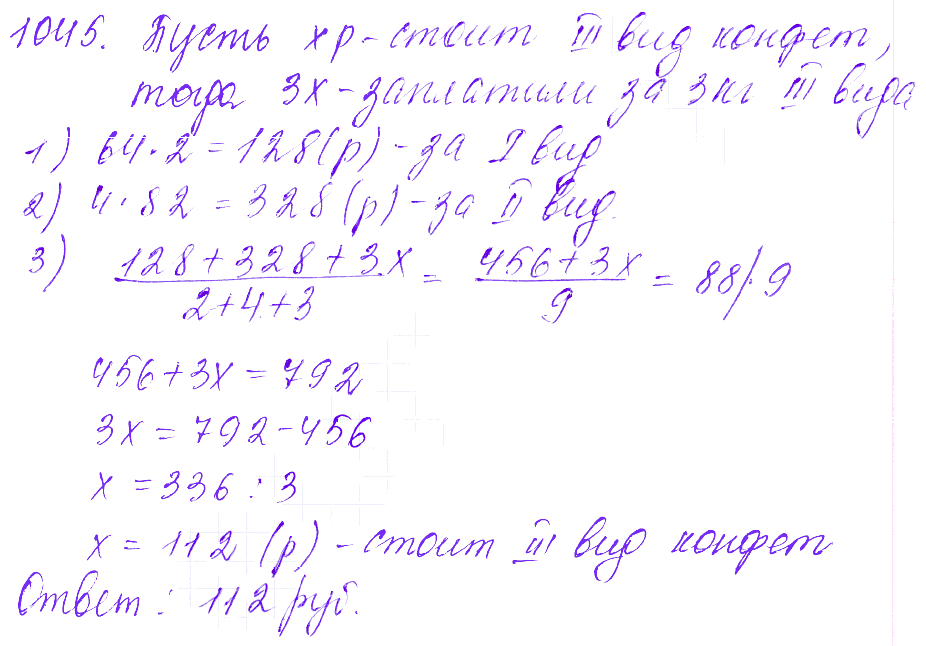 1045. Пусть х р - стоит III вид конфет,
тогда 3х - заплатили за 3кг III вида
1) 64 · 2 = 128 (р) - за I вид
2) 4 · 82 = 328 (р) - за II вид.
3) (128 + 328 + 3х)/(2 + 4 + 3) = (456 + 3х)/9 = 88 | · 9
456 + 3х = 792
3х = 792 - 456
х = 336 : 3
х = 112 (р) - стоит III вид конфет
Ответ: 112 руб.